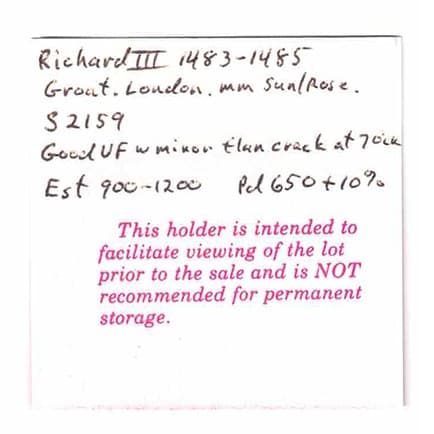 Richard III 1483-1485
Groat. London. mm Sun/Rose.
S 2159
Good VF w minor flan crack at 7 o'clk
Est 900-1200 Pd 650+10%
This holder is intended to
facilitate viewing of the lot
prior to the sale and is NOT
recommended for permanent
storage.